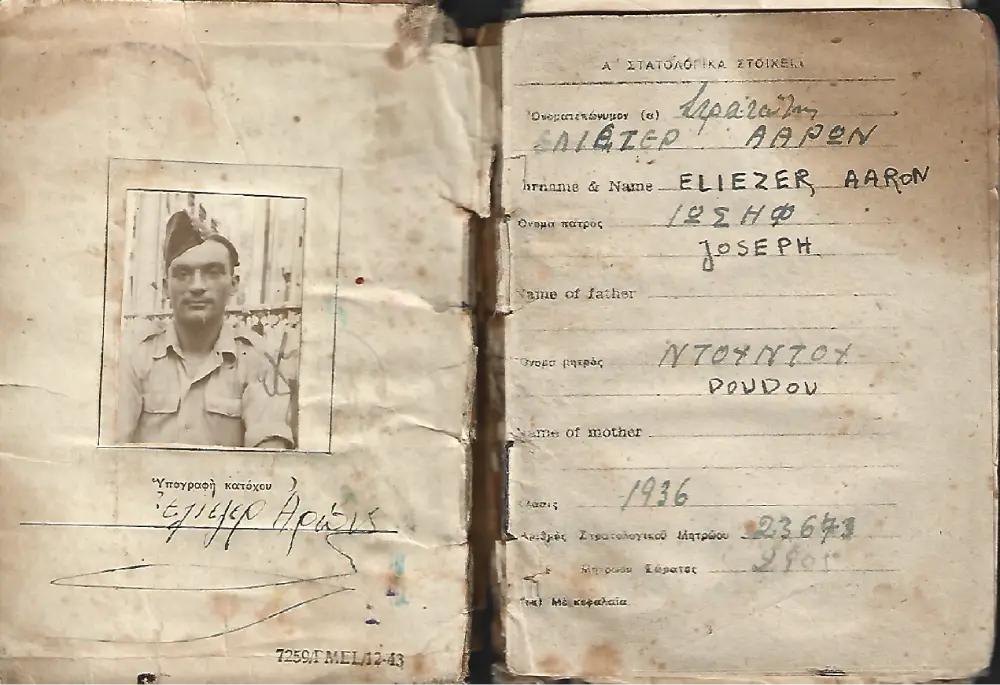 Ὑπογραφὴ κατόχου
Ἐλιέζερ Ἀρών
7259/PMEL/12-43
Α' ΣΤΑΤΟΛΟΓΙΚΑ ΣΤΟΙΧΕΙΑ
Ὀνοματεπώνυμον (α) Στρατιώτης
ΕΛΙΕΖΕΡ ΑΑΡΩΝ
Surname & Name ELIEZER AARON
Ὄνομα πατρὸς ΙΩΣΗΦ
JOSEPH
Name of father
Ὄνομα μητρὸς ΝΤΟΥΝΤΟΥ
DOUDOU
Name of mother
Κλάσις 1936
Ἀριθμὸς Στρατολογικοῦ Μητρώου 23673
Μητρώου Σώματος
(α) Μὲ κεφαλαῖα